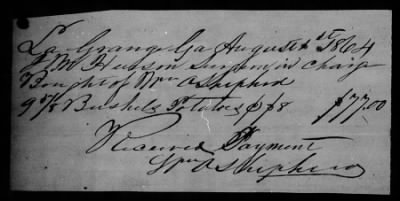 La Grange Ga August 1st 1864
Hudson Surgeon in Charge
Bought of Wm O Shepherd
9 5/8 Bushels Potatoes @ $8 $77.00
Received Payment
Wm O Shepherd